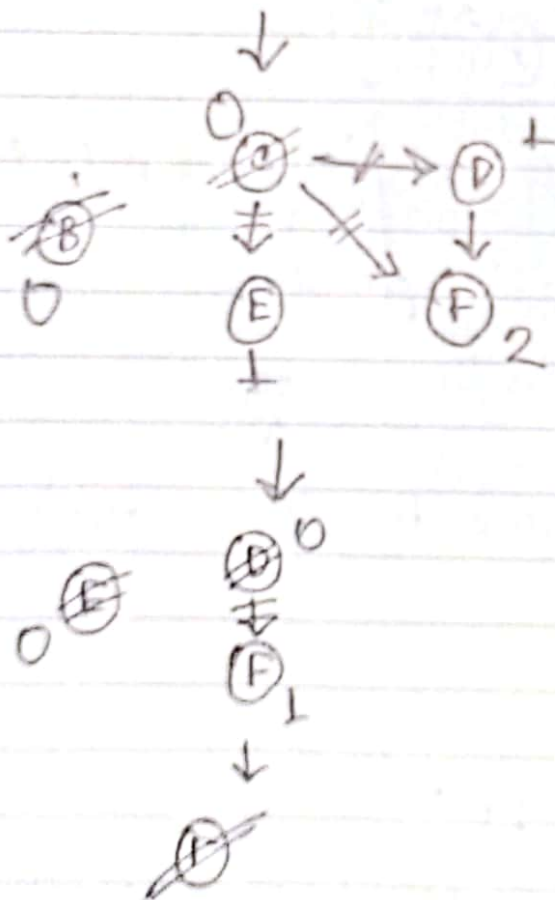 0
C D 1
B
0 E F
1 2
D 0
E
0 F
1
F